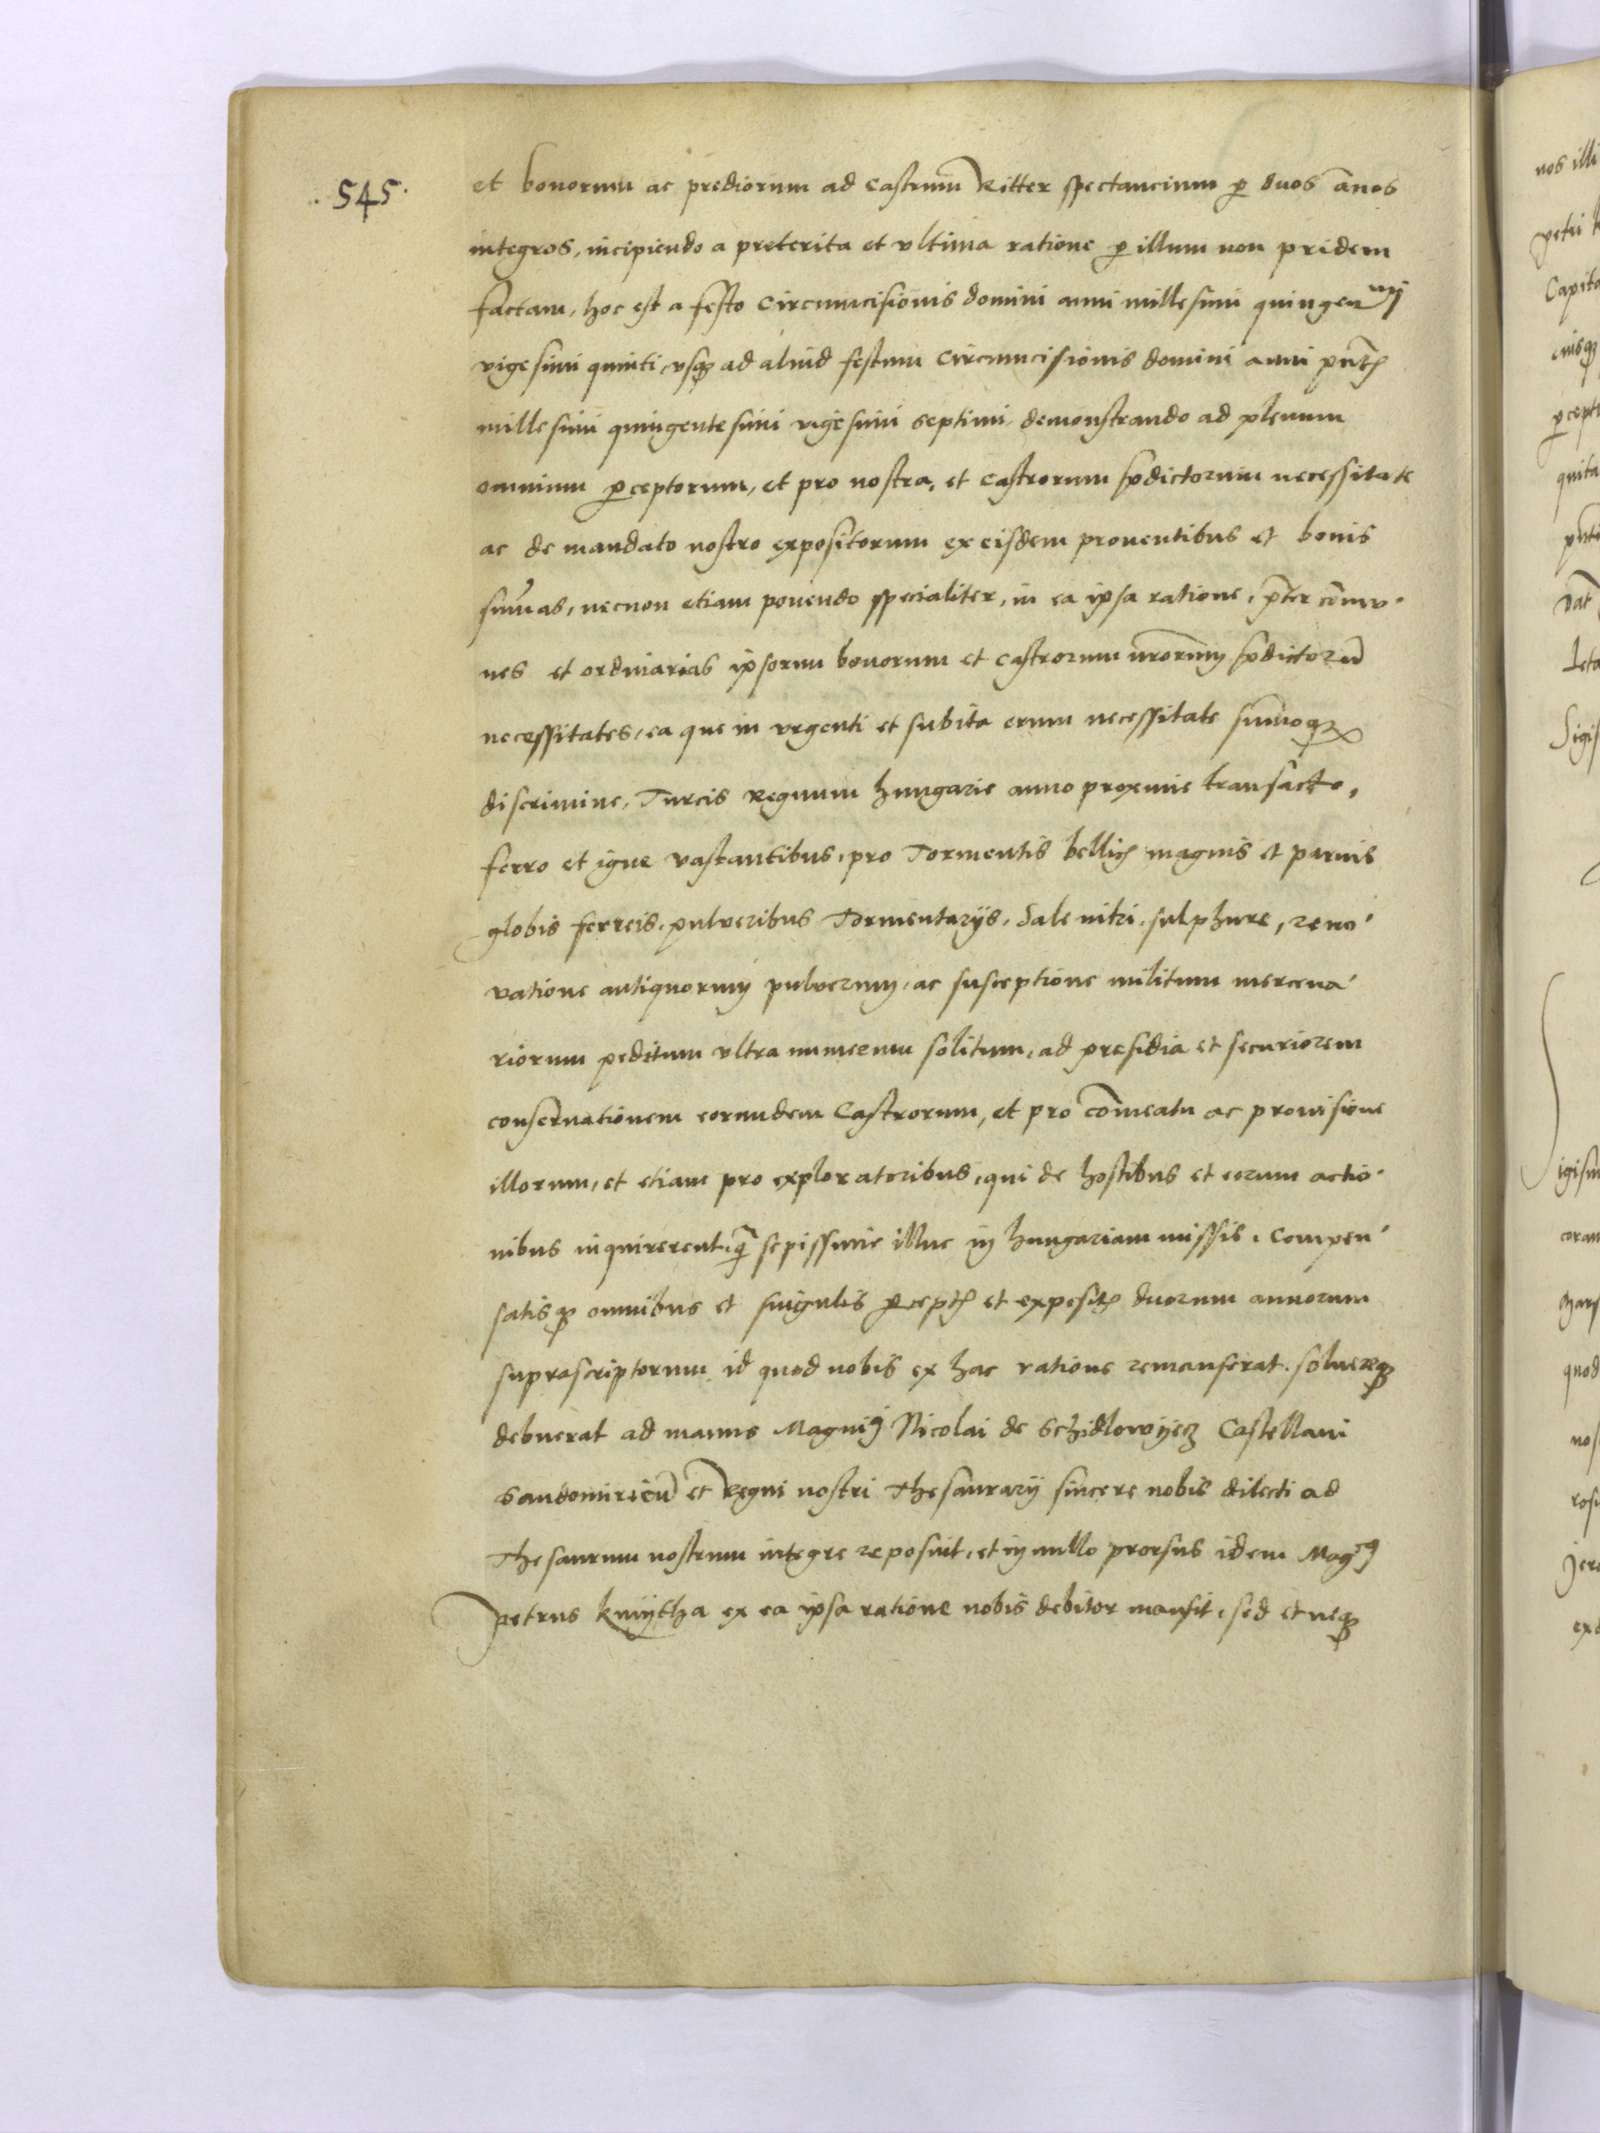 . 545 .
et bonorum ac prediorum ad Castrum Ritter spectancium p duos años
integros, incipiendo a preterita et vltima ratione p illum non pridem
factam, hoc est a festo Circumcisionis domini anni millesimi quingenmj
vigesimi quinti, vsq ad aliud festum Circumcisionis domini anni pntis
millesimi quingentesimi vigesimi septimi, demonstrando ad plenum
omnium pceptorum, et pro nostra, et Castrorum spdictorum necessitate
ac de mandato nostro expositorum ex eisdem prouentibus et bonis
sumas, necnon etiam ponendo specialiter, in ea ipsa ratione, pter comu-
nes et ordinarias ipsorum bonorum et Castrorum nrorum spdictorum
necessitates, ea que in vrgenti et subita erum necessitate sumoq
discrimine, Turcis Regnum hungarie anno proxime transacto,
ferro et igne vastantibus, pro Tormentis bellicis magnis et paruis
globis ferreis, pulveribus Tormentarijs, Sale nitri, sulphure, reno-
vatione antiquorum puluerum, ac susceptione militum mercena-
riorum peditum vltra numerum solitum, ad presidia et securiorem
conseruationem eorundem Castrorum, et pro comeatu ac prouisione
illorum, et etiam pro exploratoribus, qui de hostibus et eorum actio-
nibus inquirerent, q sepissime illuc in hungariam missis, Compen-
satisq omnibus et singulis pceptis et expositis duorum annorum
suprascriptorum id quod nobis ex hac ratione remanserat, soluereq
debuerat ad manus Magnici Nicolai de Schidlowijecz Castellani
Sandomirien et Regni nostri Thesaurarij sincere nobis dilecti ad
Thesaurum nostrum integre reposuit, et in nullo prorsus idem Magcus
petrus kmijtha ex ea ipsa ratione nobis debitor mansit, sed et neq